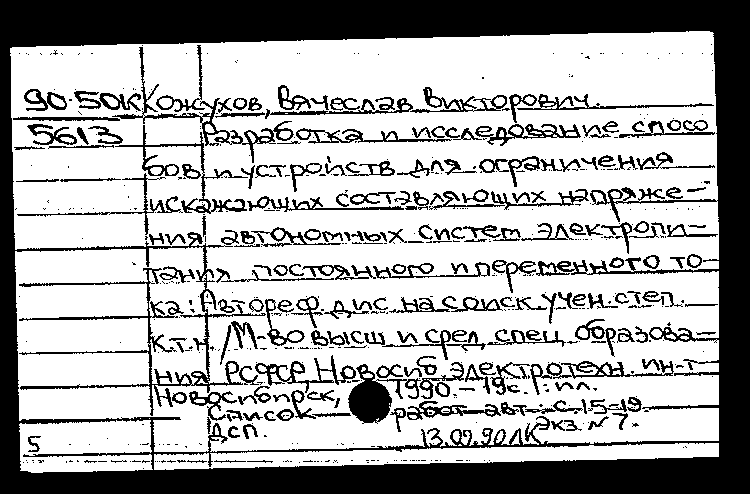 90-50К Кожухов, Вячеслав Викторович.
5613 Разработка и исследование спосо
бов и устройств для ограничения
искажающих составляющих напряже-
ния автономных систем электропи-
тания постоянного и переменного то-
ка: Автореф. дис. на соиск. учен. степ.
к.т.н. / М-во высш. и сред. спец. образова-
ния РСФСР, Новосиб. электротехн. ин-т
Новосибирск, 1990. - 19с. I: ил.
Список работ авт.: с. 15-19.
ДСП. Экз. N 7.
5 13.09.90 ЛК